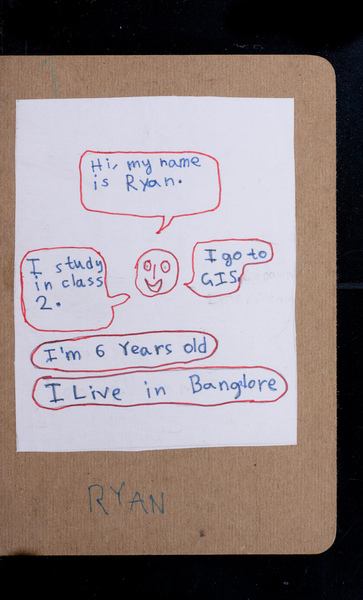 Hi, my name
is Ryan.
I study
in class
2.
I go to
GIS.
I'm 6 Years old
I Live in Banglore
RYAN